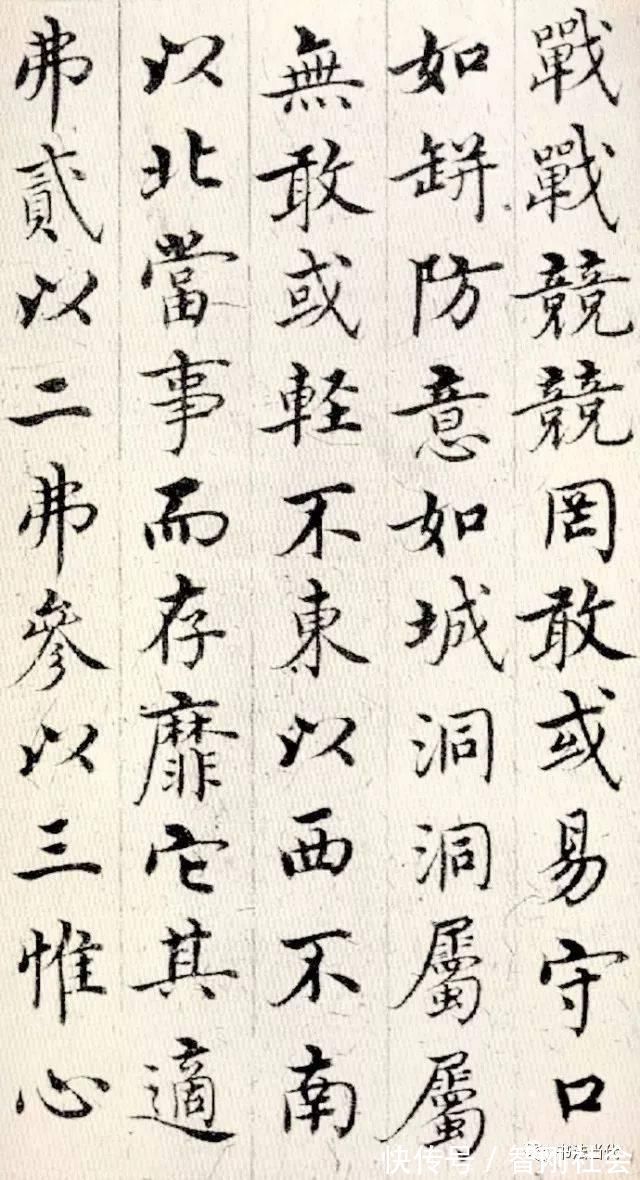 戰戰競競罔敢或易守口
如缾防意如城洞洞屬屬
無敢或軽不東以西不南
以北當事而存靡它其適
弗貳以二弗參以三惟心
书法当代
快传号/智刚社会